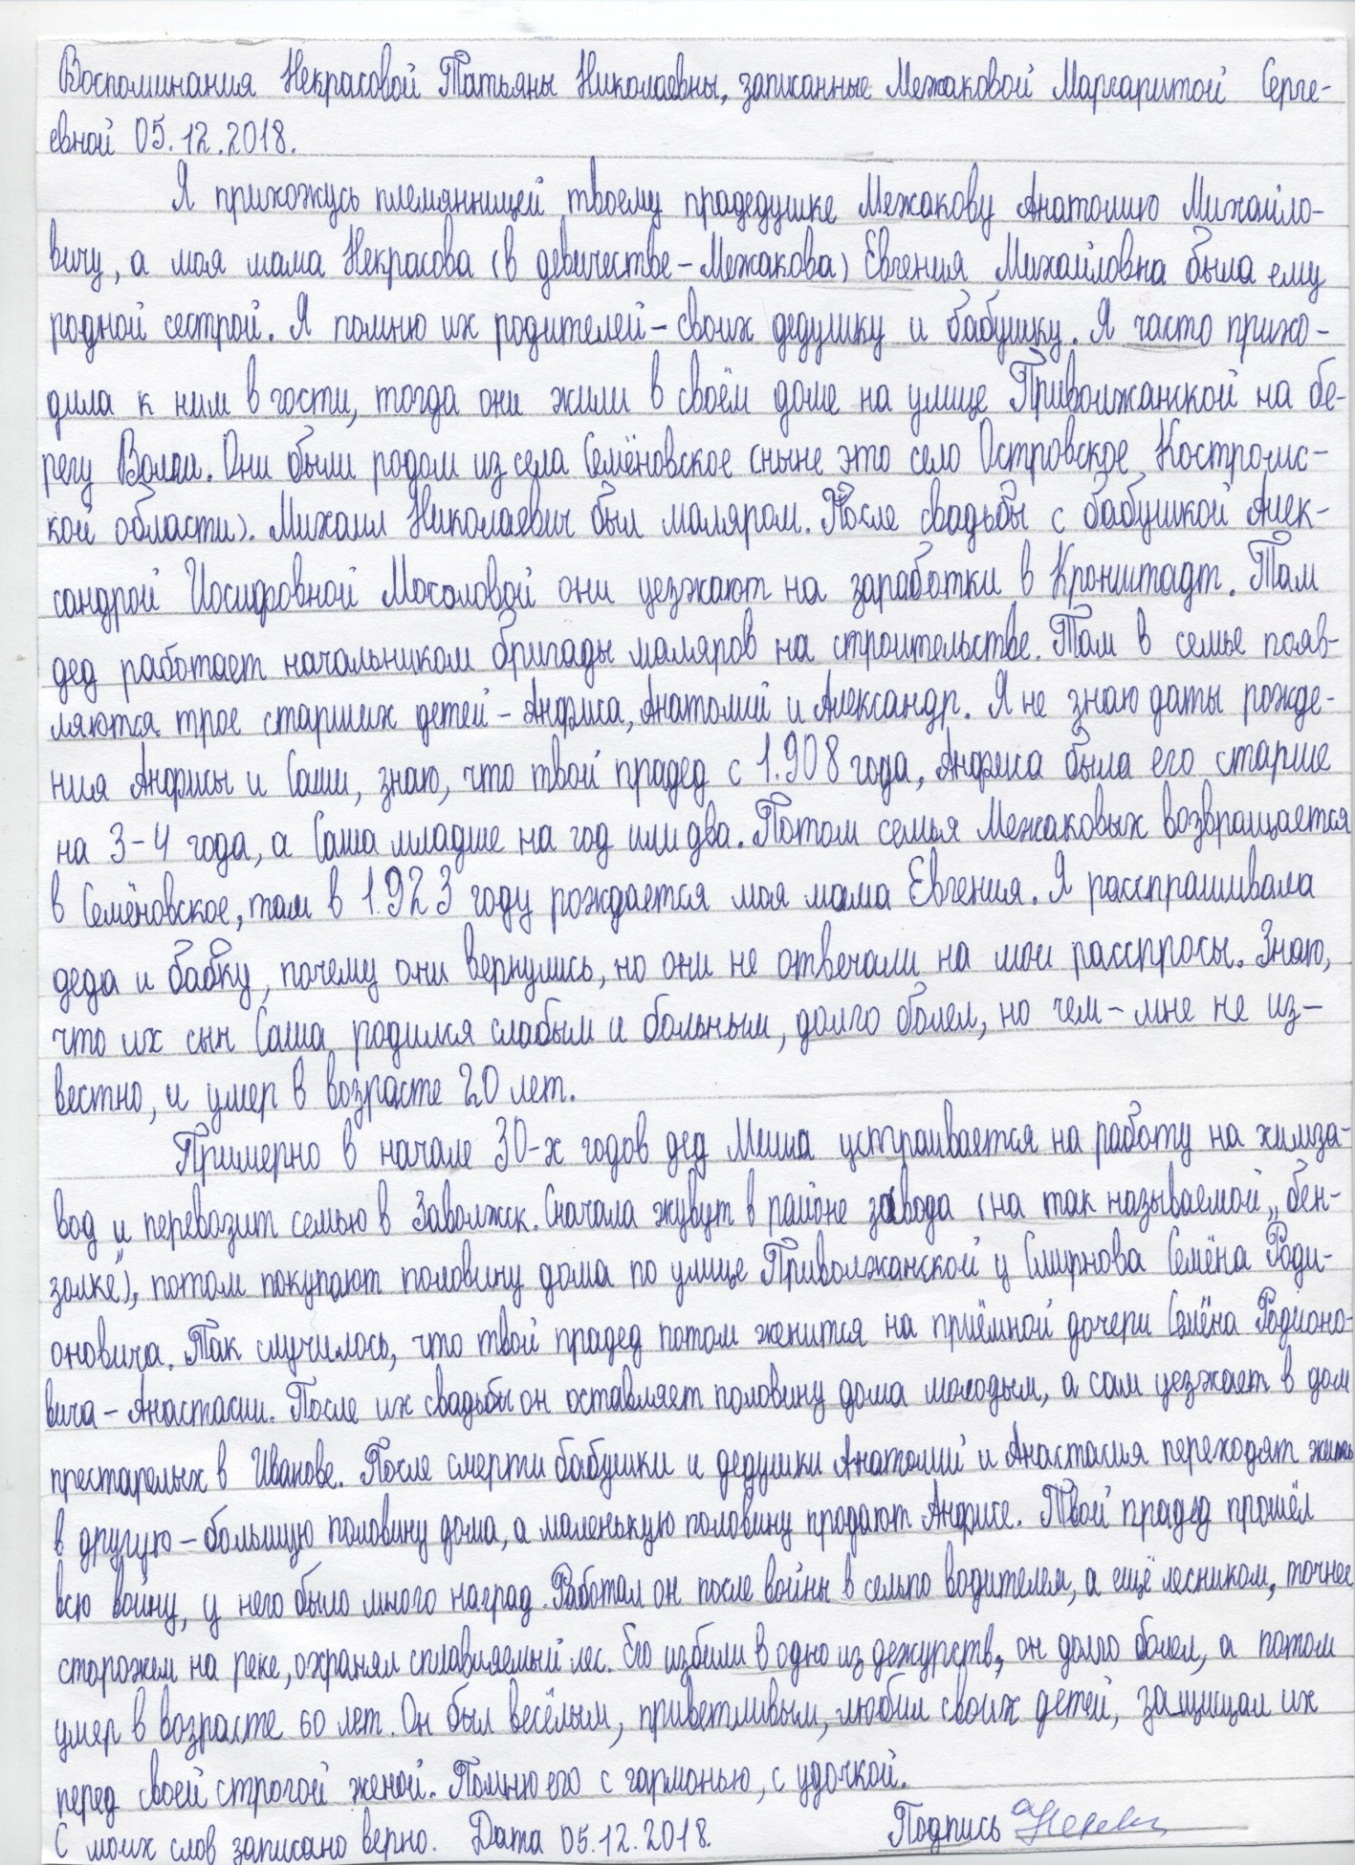 Воспоминания Некрасовой Татьяны Николаевны, записанные Межаковой Маргаритой Серге-
евной 05.12.2018.
Я прихожусь племянницей твоему прадедушке Межакову Анатолию Михайло-
вичу, а моя мама Некрасова (в девичестве – Межакова) Евгения Михайловна была ему
родной сестрой. Я помню их родителей – своих дедушку и бабушку. Я часто прихо-
дила к ним в гости, тогда они жили в своём доме на улице Приволжанской на бе-
регу Волги. Они были родом из села Семёновское (ныне это село Островское Костромс-
кой области). Михаил Николаевич был маляром. После свадьбы с бабушкой Алек-
сандрой Иосифовной Мосоловой они уезжают на заработки в Кронштадт. Там
дед работает начальником бригады маляров на строительстве. Там в семье появ-
ляются трое старших детей – Анфиса, Анатолий и Александр. Я не знаю даты рожде-
ния Анфисы и Саши, знаю, что твой прадед с 1.908 года, Анфиса была его старше
на 3-4 года, а Саша младше на год или два. Потом семья Межаковых возвращается
в Семёновское, там в 1.923 году рождается моя мама Евгения. Я расспрашивала
деда и бабку, почему они вернулись, но они не отвечали на мои расспросы. Знаю,
что их сын Саша родился слабым и больным, долго болел, но чем – мне не из-
вестно, и умер в возрасте 20 лет.
Примерно в начале 30-х годов дед Миша устраивается на работу на химза-
вод и перевозит семью в Заволжск. Сначала живут в районе завода (на так называемой „бен-
золке"), потом покупают половину дома по улице Приволжанской у Смирнова Семёна Роди-
оновича. Так случилось, что твой прадед потом женится на приёмной дочери Семёна Родионо-
вича – Анастасии. После их свадьбы он оставляет половину дома молодым, а сам уезжает в дом
престарелых в Иванове. После смерти бабушки и дедушки Анатолий и Анастасия переходят жить
в другую – большую половину дома, а маленькую половину продают Анфисе. Твой прадед прошёл
всю войну, у него было много наград. Работал он после войны в сельпо водителем, а ещё лесником, точнее
сторожем на реке, охранял сплавляемый лес. Его избили в одно из дежурств, он долго болел, а потом
умер в возрасте 60 лет. Он был весёлым, приветливым, любил своих детей, защищал их
перед своей строгой женой. Помню его с гармонью, с удочкой.
С моих слов записано верно. Дата 05.12.2018. Подпись